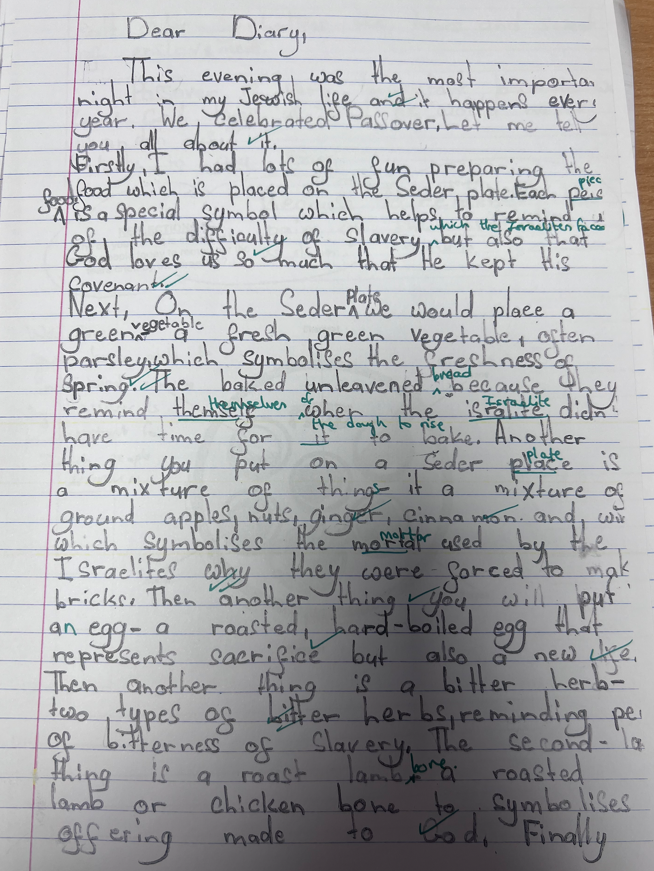 Dear Diary,
This evening was the most importa
night in my Jewish life and it happens ever
year. We celebrated Passover. Let me tel
you all about it.
Firstly, I had lots of fun preparing the
piec
foods food which is placed on the Seder plate. Each peis
is a special symbol which helps to remind
which the Israelites faced
of the difficulty of slavery but also that
God loves us so much that He kept His
Covenant.
Plate
Next, On the Seder we would place a
vegetable
green a fresh green vegetable, often
parsley, which symbolises the freshness of
bread
Spring. The baked unleavened because they
themselves of Israelite
remind themself when the isralite didn
the dough to rise
have time for it to bake. Another
plate
thing you put on a Seder place is
a mixture of things it a mixture of
ground apples, nuts, ginger, cinnamon and, wi
mortar
which symbolises the mortal used by the
Israelites why they were forced to mak
bricks. Then another thing you will put
an egg- a roasted, hard-boiled egg that
represents sacrifice but also a new life.
Then another thing is a bitter herb-
two types of bitter herbs, reminding pe
of bitterness of Slavery. The second-la
bone
thing is a roast lamb a roasted
lamb or chicken bone to symbolises
offering made to God. Finally